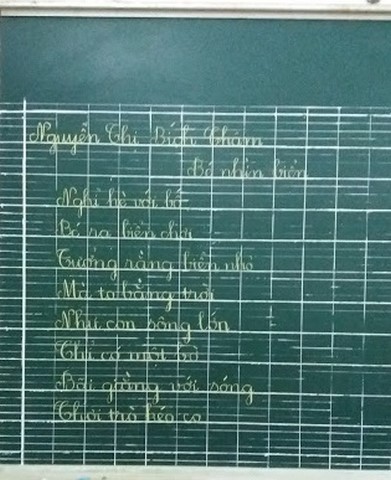 Nguyễn Thị Bích Thắm
Bé nhìn biển
Nghỉ hè với bố
Bé ra biển chơi
Tưởng rằng biển nhỏ
Mà to bằng trời
Như con sông lớn
Chỉ có một bờ
Bãi giằng với sóng
Chơi trò kéo co